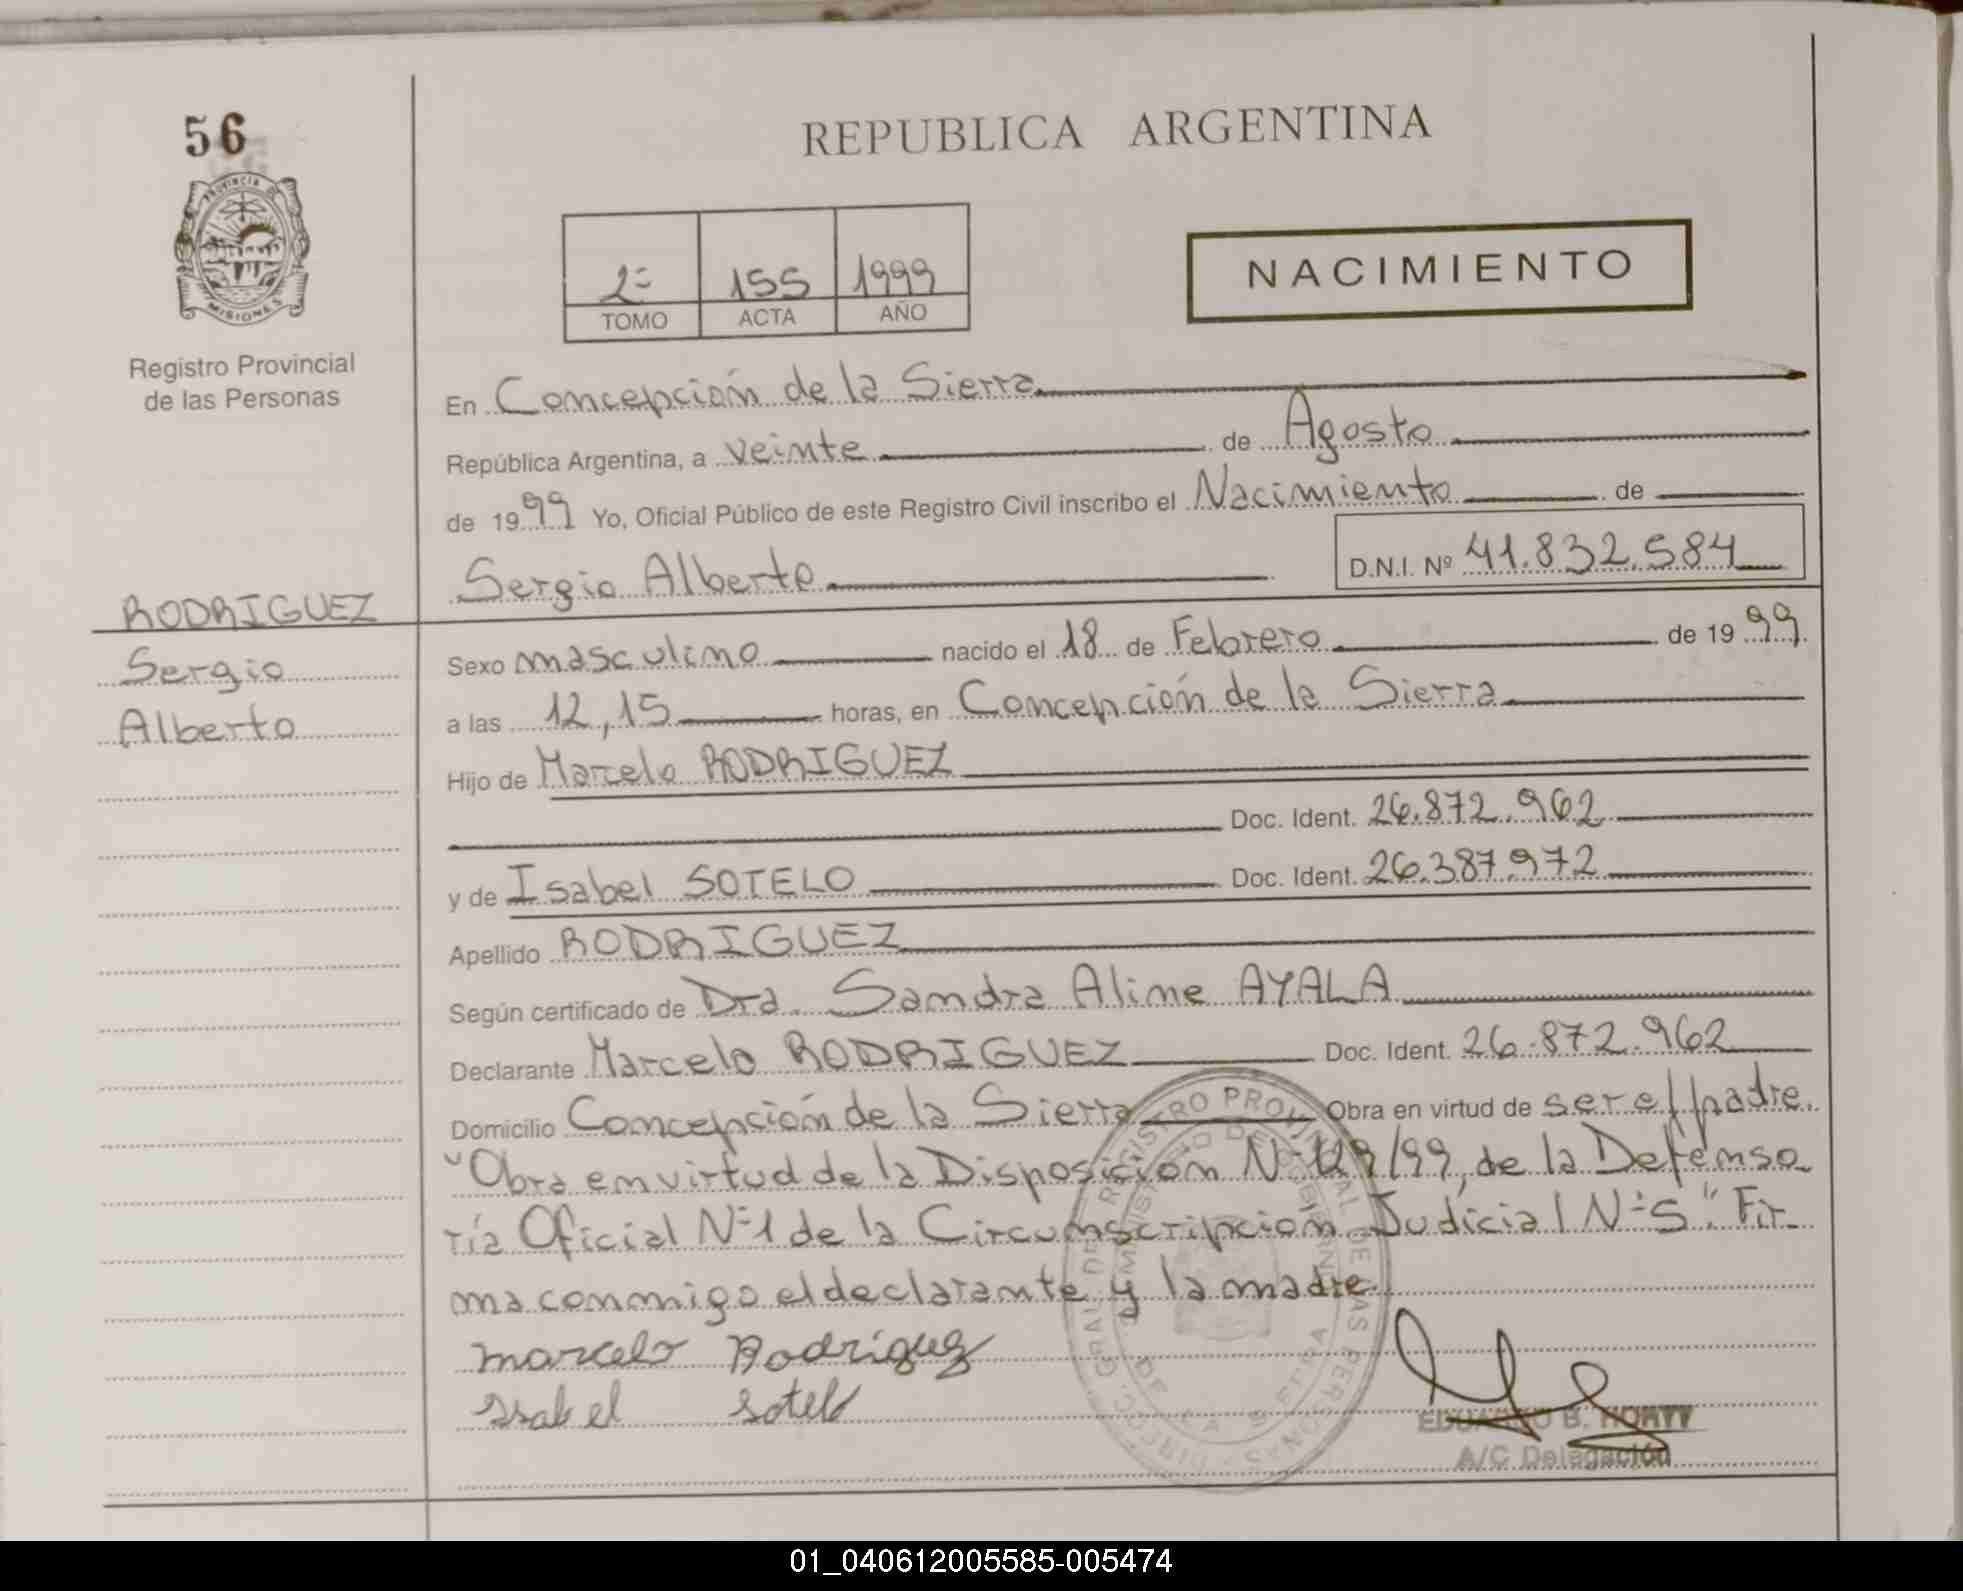 56
REPUBLICA ARGENTINA
PROVINCIA DE
MISIONES
2=
155
1999
TOMO
ACTA
AÑO
NACIMIENTO
Registro Provincial
de las Personas
En Concepción de la Sierra
República Argentina, a veinte de Agosto
de 1999 Yo, Oficial Público de este Registro Civil inscribo el Nacimiento de
Sergio Alberto
D.N.I. Nº 41.832.584
RODRIGUEZ
Sergio
Alberto
Sexo masculino nacido el 18 de Febrero de 1999
a las 12,15 horas, en Concepción de la Sierra
Hijo de Marcelo RODRIGUEZ
Doc. Ident. 26.872.962
y de Isabel SOTELO Doc. Ident. 26.387.972
Apellido RODRIGUEZ
Según certificado de Dra. Sandra Aline AYALA
Declarante Marcelo RODRIGUEZ Doc. Ident. 26.872.962
Domicilio Concepción de la Sierra Obra en virtud de ser el padre.
"Obra en virtud de la Disposición Nº /99, de la Defenso
ría Oficial Nº1 de la Circunscripcion Judicial Nº5". Fir
ma conmigo el declarante y la madre.
marcelo Rodriguez
Isabel Sotelo
EDUARDO B.
A/C Delegación
01_040612005585-005474